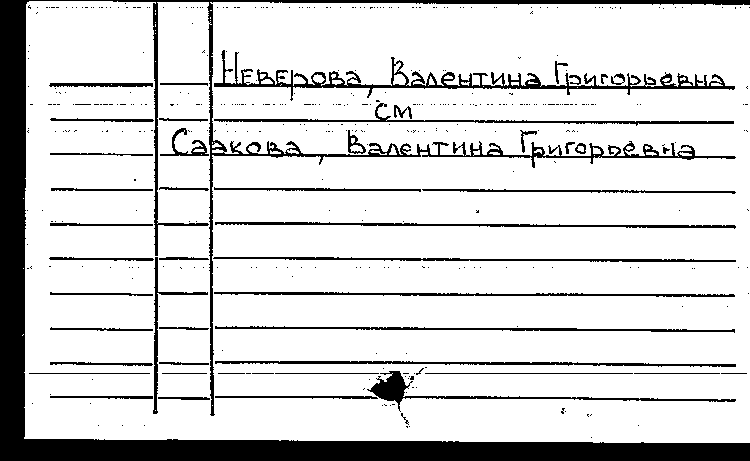 Неверова, Валентина Григорьевна
см
Саакова, Валентина Григорьевна